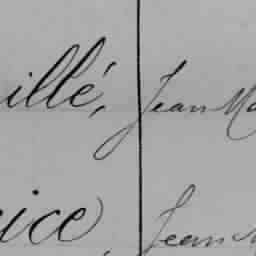 illé, Jean Ma
ice, Jean